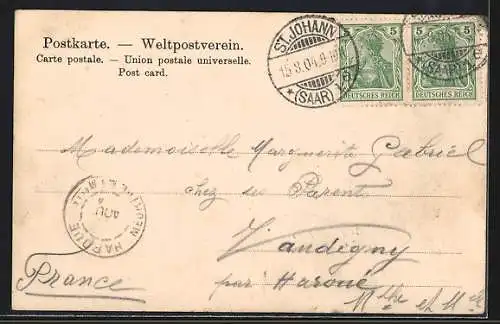 Postkarte. — Weltpostverein.
Carte postale. — Union postale universelle.
Post card.
ST. JOHANN
15.8.04.
* (SAAR)
5 5
DEUTSCHES REICH
5 5
DEUTSCHES REICH
(SAAR)
Mademoiselle Marguerite Gabriel
chez ses Parent
Vaudigny
par Haroué
Mthe et Mlle
HAROUÉ
AOU
France